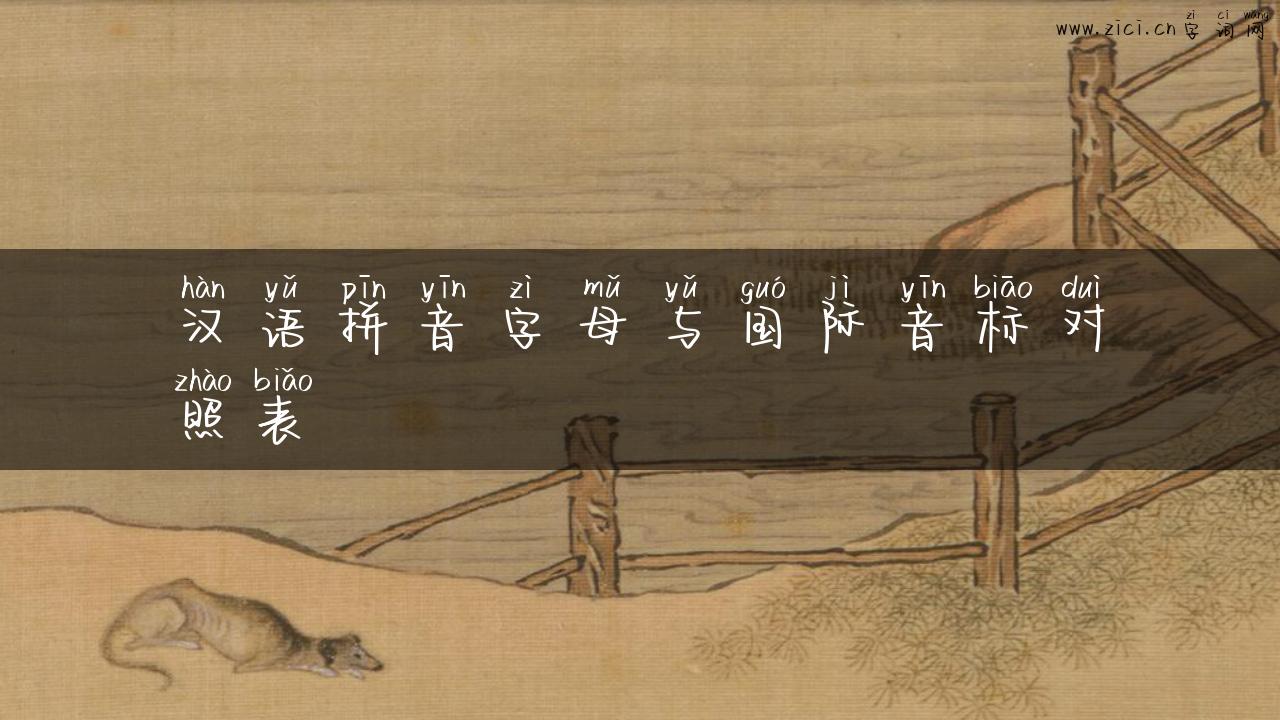 zì cí wǎng
www.zici.cn 字词网
hàn yǔ pīn yīn zì mǔ yǔ guó jì yīn biāo duì
汉语拼音字母与国际音标对
zhào biǎo
照表